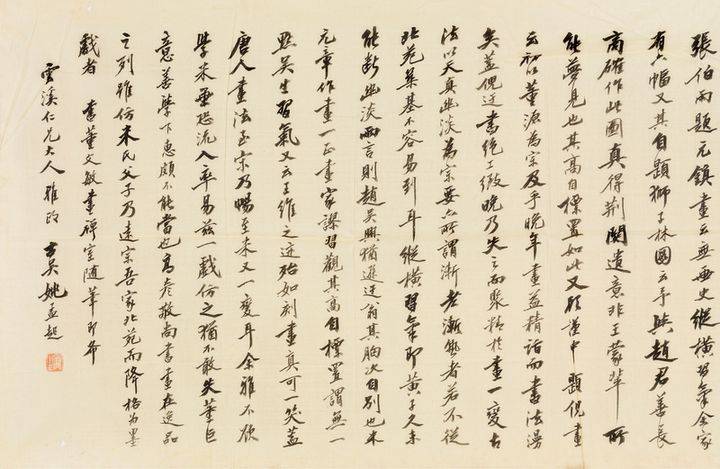 張伯雨題元鎮畫云無画史縱橫習氣余家
有此幅又其自題獅子林圖云予與趙君善長
商確作此圖真得荊關遺意非王蒙輩所
能夢見也其高自標置如此又顧謹中題倪畫
云初以董源為宗及乎晚年畫益精詣而書法漫
矣蓋倪迂書絕工緻晚乃失之而聚精於畫一變古
法以天真幽淡為宗要亦所謂漸老漸熟者若不從
北苑築基不容易到耳縱橫習氣即黃子久未
能斷幽淡兩言則趙吳興猶遜迂翁其胸次自別也米
元章作畫一正畫家謬習觀其高自標置謂無一
點吳生習氣又云王維之迹殆如刻畫真可一笑蓋
唐人畫法至宋乃暢至米又一變耳余雅不欲
學米画恐流入率易茲一戲仿之猶不敢失董巨
意善學下惠頗不能當也高彥敬尚書畫在逸品
之列雖仿米氏父子乃遠宗吾家北苑而降格為墨
戲者 書董文敏畫禪室隨筆即希
雲溪仁兄大人雅政 古吳姚孟起